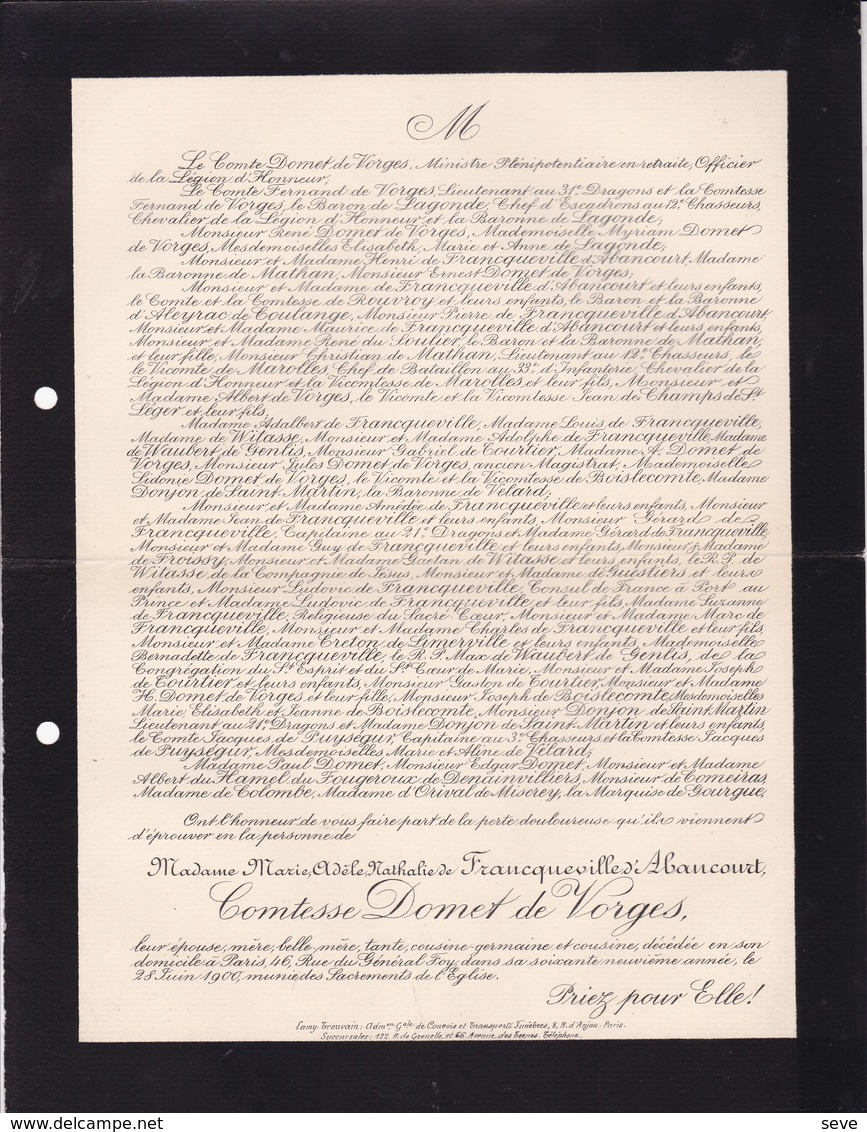 M
Le Comte Domet de Vorges, Ministre Plénipotentiaire en retraite, Officier
de la Légion d'Honneur,
Le Comte Fernand de Vorges, Lieutenant au 31e Dragons et la Comtesse
Fernand de Vorges, le Baron de Lagonde, Chef d'Escadrons au 12e Chasseurs,
Chevalier de la Légion d'Honneur et la Baronne de Lagonde,
Monsieur René Domet de Vorges, Mademoiselle Myriam Domet
de Vorges, Mesdemoiselles Elisabeth, Marie et Anne de Lagonde;
Monsieur et Madame Henri de Francqueville d'Abancourt, Madame
la Baronne de Mathan, Monsieur Ernest Domet de Vorges;
Monsieur et Madame de Francqueville d'Abancourt et leurs enfants,
le Comte et la Comtesse de Rouvroy et leurs enfants, le Baron et la Baronne
d'Aleyrac de Coulange, Monsieur Pierre de Francqueville d'Abancourt,
Monsieur et Madame Maurice de Francqueville d'Abancourt et leurs enfants,
Monsieur et Madame René du Soulier, le Baron et la Baronne de Mathan,
et leur fille, Monsieur Christian de Mathan, Lieutenant au 12e Chasseurs, le
le Vicomte de Marolles Chef de Bataillon au 33e d'Infanterie, Chevalier de la
Légion d'Honneur et la Vicomtesse de Marolles et leur fils, Monsieur et
Madame Albert de Vorges, le Vicomte et la Vicomtesse Jean de Champs de St
Léger et leur fils,
Madame Adalbert de Francqueville, Madame Louis de Francqueville,
Madame de Witasse, Monsieur et Madame Adolphe de Francqueville, Madame
de Waubert de Genlis, Monsieur Gabriel de Tourtier, Madame A. Domet de
Vorges, Monsieur Jules Domet de Vorges, ancien Magistrat, Mademoiselle
Sidonie Domet de Vorges, le Vicomte et la Vicomtesse de Boislecomte, Madame
Donjon de Saint Martin, la Baronne de Vélard;
Monsieur et Madame Amédée de Francqueville et leurs enfants, Monsieur
et Madame Jean de Francqueville et leurs enfants, Monsieur Gérard de
Francqueville, Capitaine au 21e Dragons et Madame Gérard de Francqueville,
Monsieur et Madame Guy de Francqueville et leurs enfants, Monsieur & Madame
de Froissy, Monsieur et Madame Gaetan de Witasse et leurs enfants, le R.P. de
Witasse de la Compagnie de Jésus, Monsieur et Madame de Guestiers et leurs
enfants, Monsieur Ludovic de Francqueville, Consul de France à Port au
Prince et Madame Ludovic de Francqueville et leur fils, Madame Suzanne
de Francqueville, Religieuse du Sacré Cœur, Monsieur et Madame Marc de
Francqueville, Monsieur et Madame Charles de Francqueville et leur fils,
Monsieur et Madame Creton de Limerville et leurs enfants, Mademoiselle
Bernadette de Francqueville, le R.P. Max de Waubert de Genlis, de la
Congrégation du St Esprit et du St Cœur de Marie, Monsieur et Madame Joseph
de Tourtier et leurs enfants, Monsieur Gaston de Tourtier, Monsieur et Madame
H. Domet de Vorges et leur fille, Monsieur Joseph de Boislecomte, Mesdemoiselles
Marie, Elisabeth et Jeanne de Boislecomte, Monsieur Donjon de Saint Martin
Lieutenant au 21e Dragons et Madame Donjon de Saint Martin et leurs enfants,
le Comte Jacques de Puységur, Capitaine au 3e Chasseurs et la Comtesse Jacques
de Puységur, Mesdemoiselles Marie et Aline de Vélard;
Madame Paul Domet, Monsieur Edgar Domet, Monsieur et Madame
Albert du Hamel du Fougeroux de Denainvilliers, Monsieur de Comeiras,
Madame de Colombe, Madame d'Orival de Miserey, la Marquise de Gourgue,
Ont l'honneur de vous faire part de la perte douloureuse qu'ils viennent
d'éprouver en la personne de
Madame Marie, Adèle, Nathalie de Francqueville d'Abancourt,
Comtesse Domet de Vorges,
leur épouse, mère, belle-mère, tante, cousine-germaine et cousine, décédée en son
domicile à Paris, 46, Rue du Général Foy, dans sa soixante neuvième année, le
28 Juin 1900, munie des Sacrements de l'Eglise.
Priez pour Elle!
Lamy-Trouvain: Admon Gale de Convois et Transports Funèbres, 8, R. d'Anjou-Paris.
Succursales: 122, R. de Grenelle, et 66 Avenue des Ternes. Téléphone.
seve